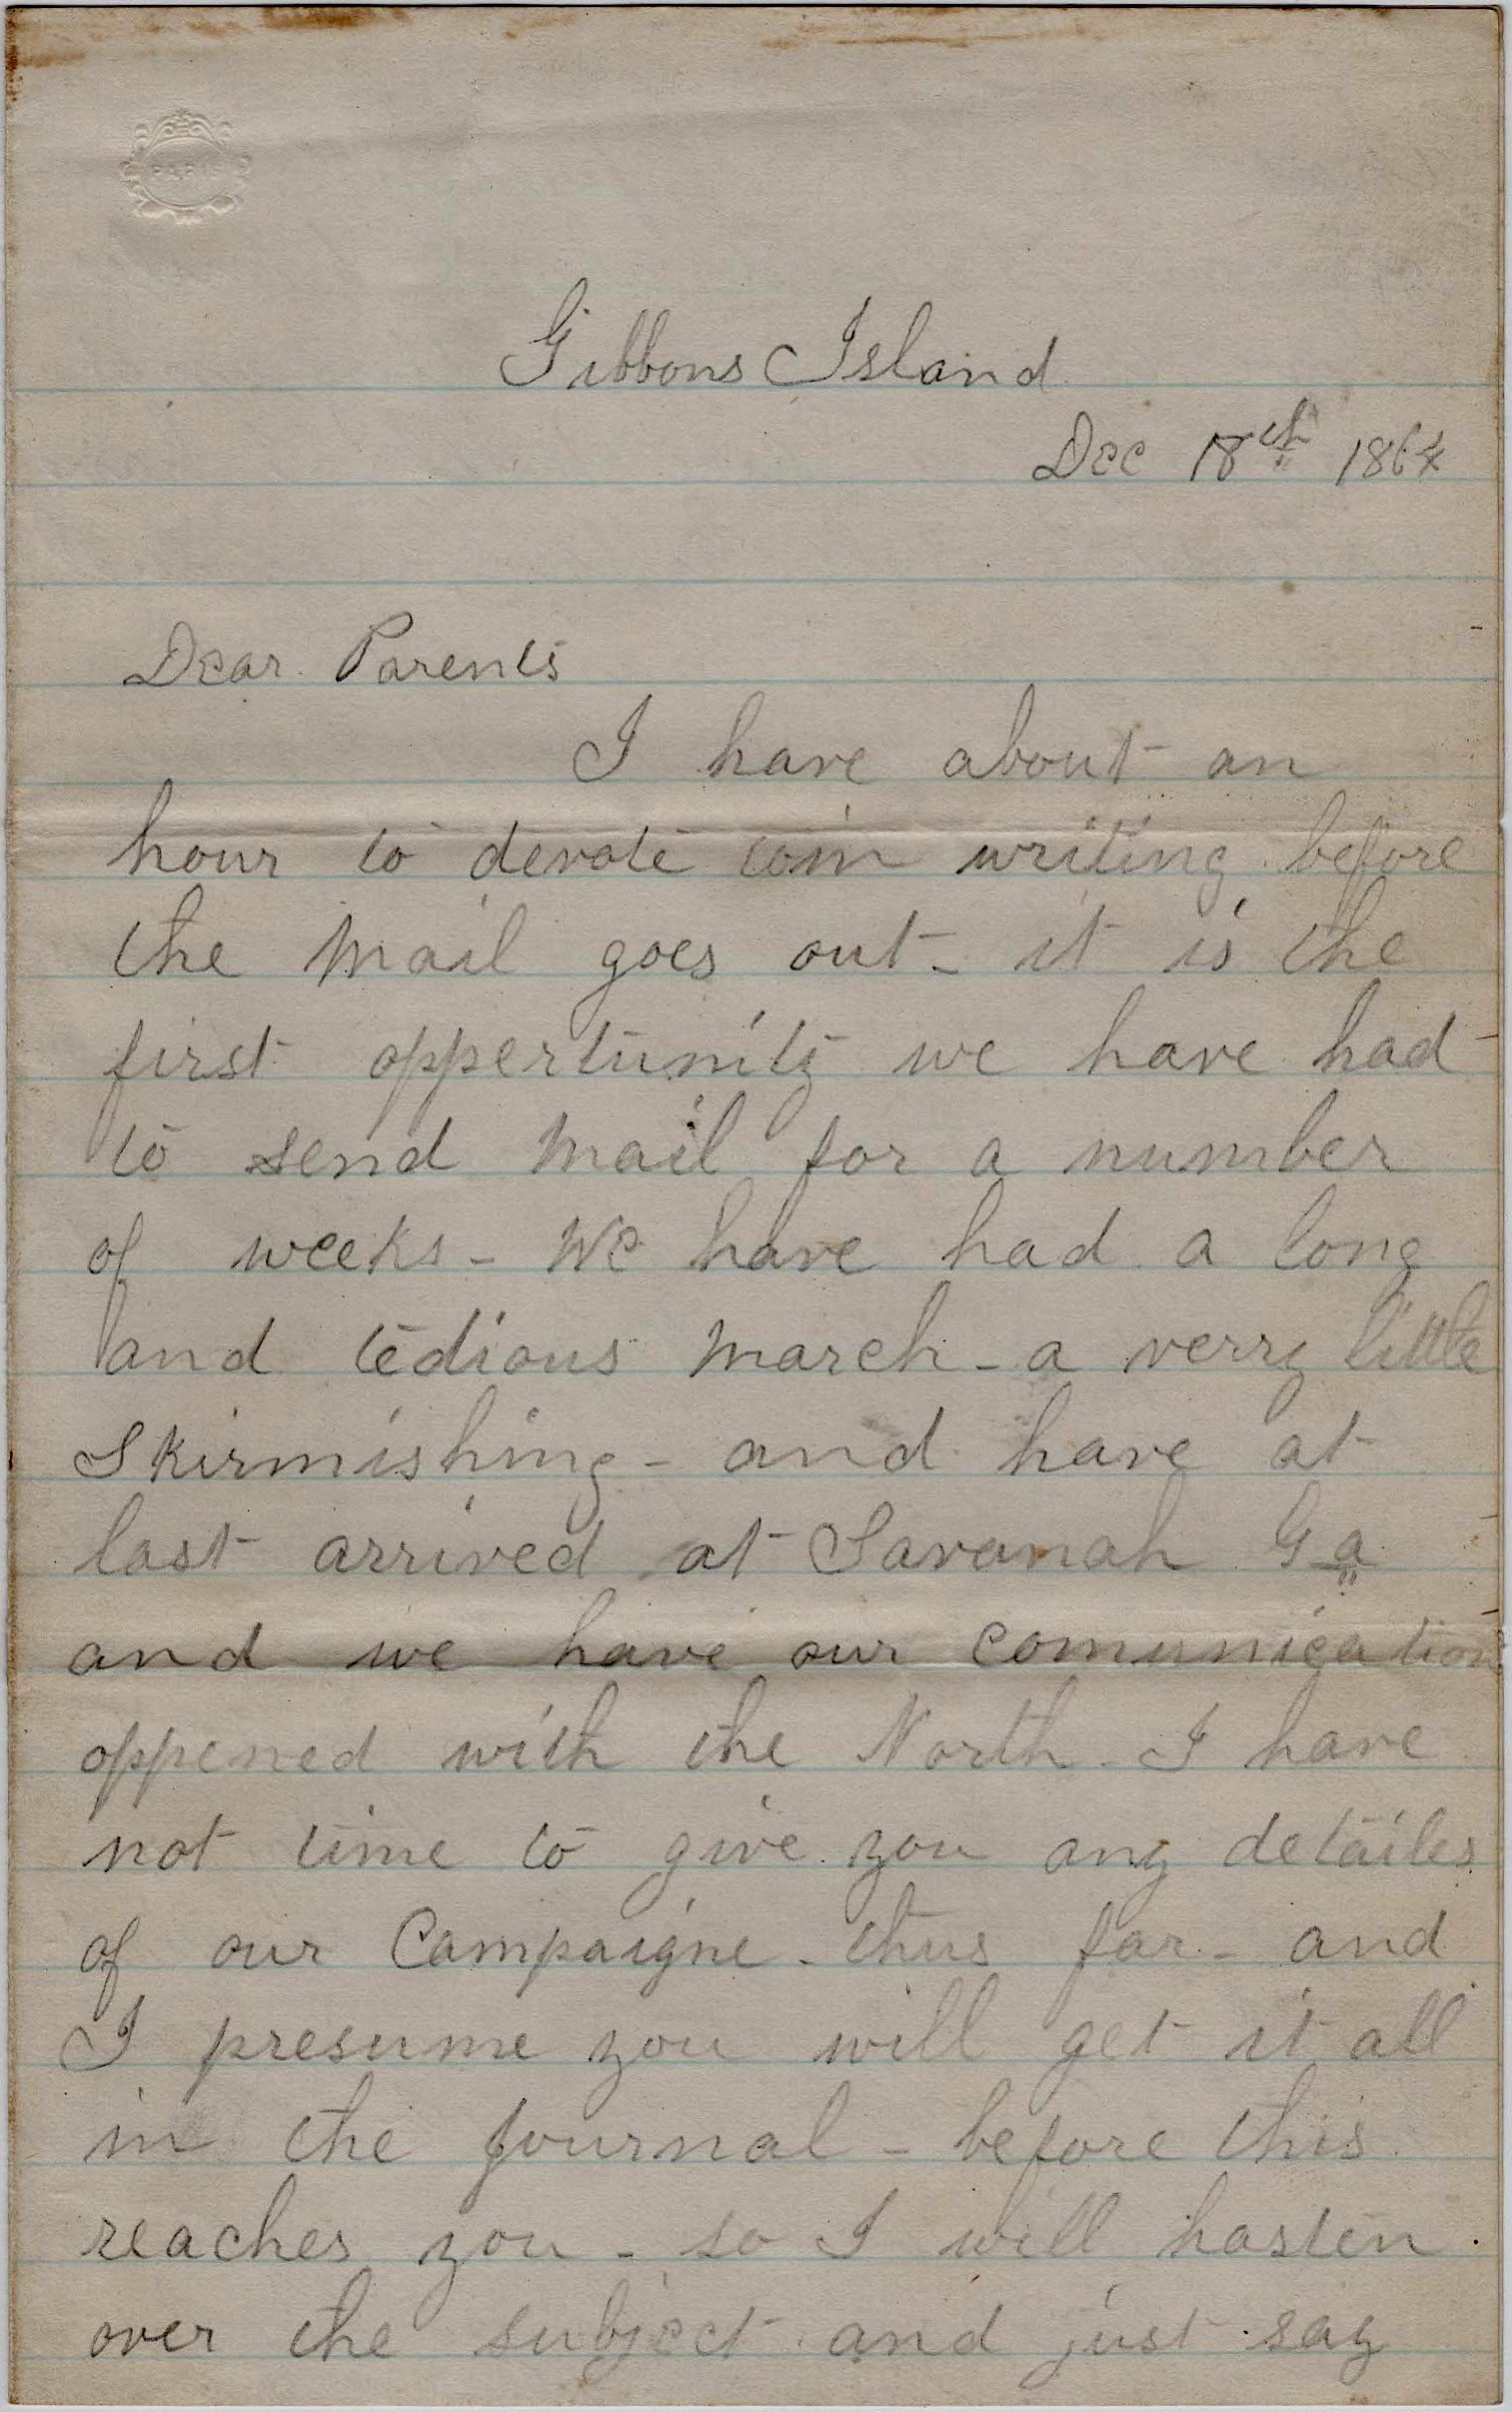 PARIS
Gibbons Island
Dec 18th 1864
Dear Parents
I have about an
hour to devote to in writing before
the Mail goes out - it is the
first oppertunity we have had
to send Mail for a number
of weeks - We have had a long
and tedious march - a verry little
Skirmishing - and have at
last arrived at Savanah Ga
and we have our comunication
oppened with the North - I have
not time to give you any detailes
of our Campaigne - thus far - and
I presume you will get it all
in the Journal - before this
reaches you - so I will hasten
over the subject and just say